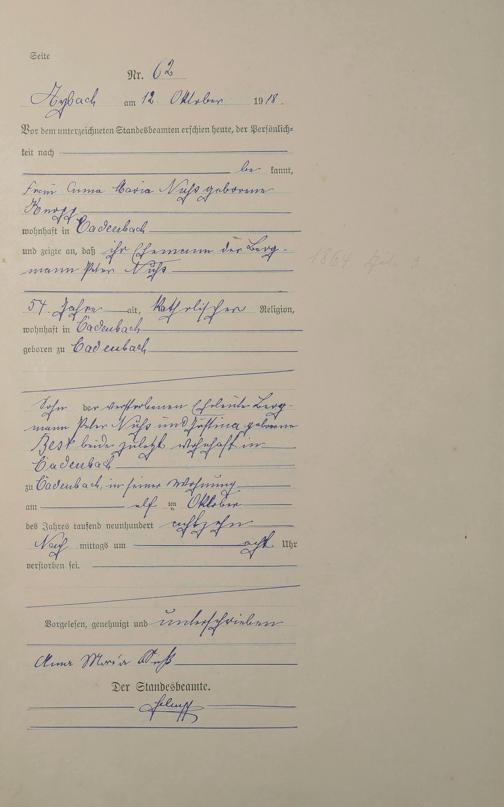 Seite
Nr. 62
Arzbach am 12. Oktober 1918.
Vor dem unterzeichneten Standesbeamten erschien heute, der Persönlich-
keit nach
be kannt,
Frau Anna Maria Nuhs geborene
wohnhaft in Cadenbach
und zeigte an, daß ihr Ehemann der Berg-
mann Peter Nuhs
54 Jahre alt, katholischer Religion,
wohnhaft in Cadenbach
geboren zu Cadenbach
Sohn der verstorbenen Eheleute Berg-
mann Peter Nuhs und Justina geborene
Best beide zuletzt wohnhaft in
Cadenbach
zu Cadenbach, in seiner Wohnung
am elf ten Oktober
des Jahres tausend neunhundert achtzehn
Nach mittags um acht Uhr
verstorben sei.
Vorgelesen, genehmigt und unterschrieben
Anna Maria
Der Standesbeamte.